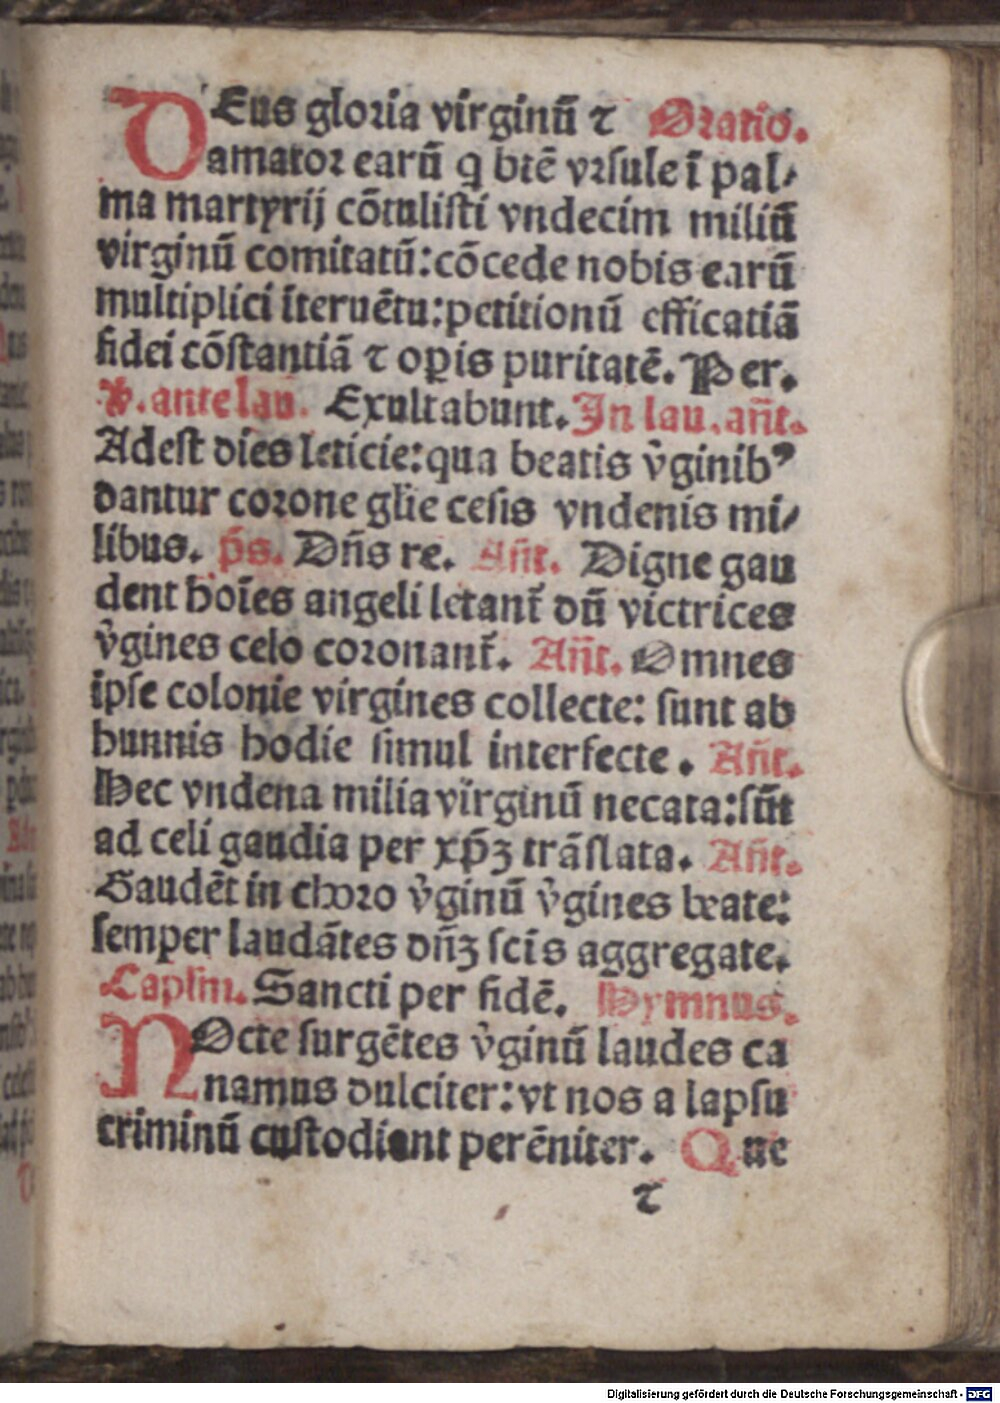 DEus gloria virginū ⁊ Oratio.
amator earū q̄ btē vrsule ī pal⸗
ma martyrij cōtulisti vndecim miliū
virginū comitatū: cōcede nobis earū
multiplici īteruētu: petitionū efficatiā
fidei cōstantiā ⁊ oꝑis puritatē. Per.
℣. ante lau. Exultabunt. In lau. an̄t.
Adest dīes leticie: qua beatis v̓ginibꝰ
dantur corone gl̄ie cesis vndenis mi⸗
libus. p̄s. Dn̄s re. An̄t. Digne gau
dent hoīes angeli letant᷑ dū victrices
v̓gines celo coronant᷑. An̄t. Omnes
ipse colonie virgines collecte: sunt ab
hunnis hodie simul interfecte. An̄t.
Hec vndena milia virginū necata: sūt
ad celi gaudia per xp̄ꝫ trāslata. An̄t.
Gaudēt in choro v̓ginū v̓gines beate:
semper laudātes dn̄ꝫ scīs aggregate.
Caplm̄. Sancti per fidē. Hymnus.
NOcte surgētes v̓ginū laudes ca
namus dulciter: vt nos a lapsu
criminū custodiant perēniter. Que
⁊
Digitalisierung gefördert durch die Deutsche Forschungsgemeinschaft - DFG